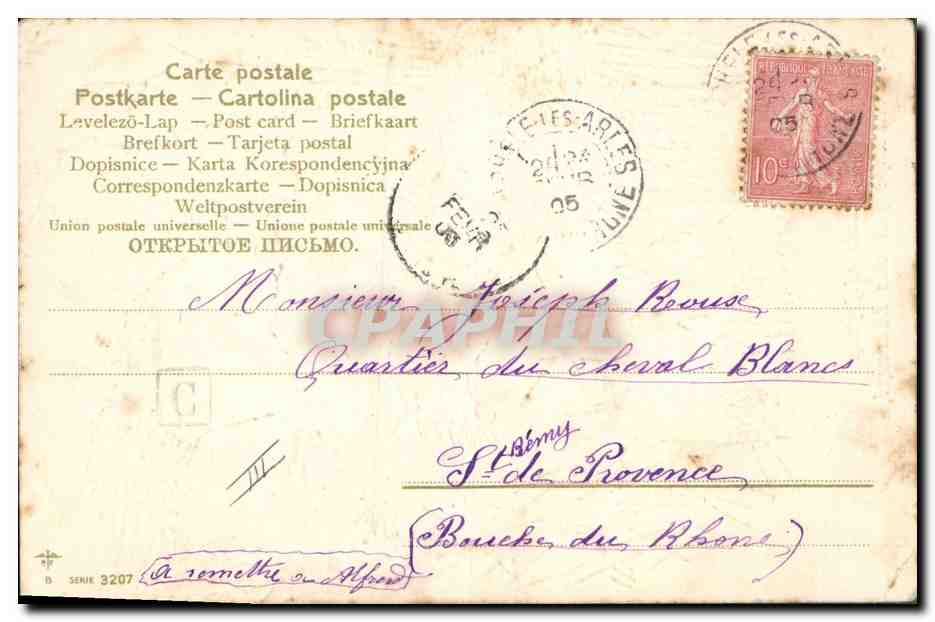 Carte postale
Postkarte — Cartolina postale
Levelezö-Lap — Post card — Briefkaart
Brefkort — Tarjeta postal
Dopisnice — Karta Korespondencyjna
Correspondenzkarte — Dopisnica
Weltpostverein
Union postale universelle — Unione postale universale
ОТКРЫТОЕ ПИСЬМО.
LES-ARLES
24
05
FEVR
05
REPUBLIQUE FRANÇAISE
10c
LES-AR
24
05
Monsieur Joseph Rouse
CPAPHIL
Quartier du Cheval Blanc
C
Rémy
St de Provence
III
(Bouches du Rhone)
B SERIE 3207
a remettre a Alfred